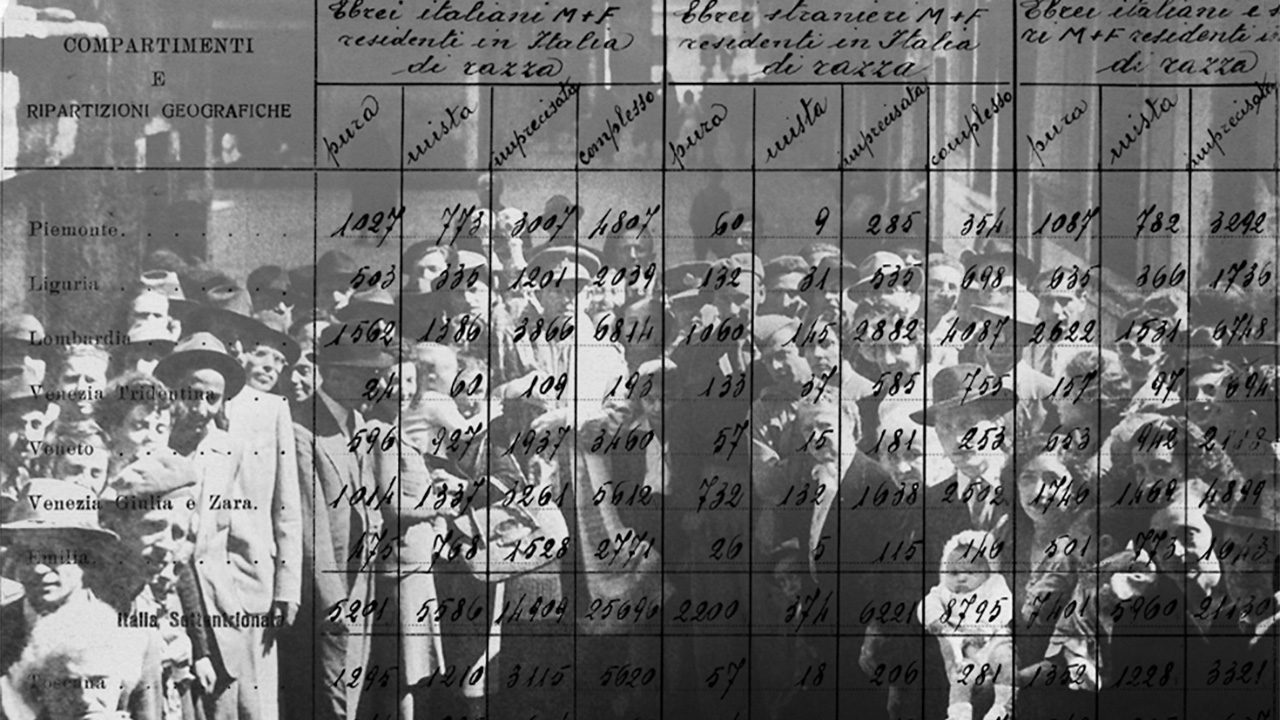 COMPARTIMENTI
E
RIPARTIZIONI GEOGRAFICHE
Ebrei italiani M+F
residenti in Italia
di razza
Ebrei stranieri M+F
residenti in Italia
di razza
Ebrei italiani e s
ri M+F residenti i
di razza
pura mista imprecisata complesso pura mista imprecisata complesso pura mista imprecisata
Piemonte. 1027 773 3007 4807 60 9 285 354 1087 782 3292
Liguria 503 335 1201 2039 132 31 535 698 635 366 1736
Lombardia 1562 1386 3866 6814 1060 145 2882 4087 2622 1531 6748
Venezia Tridentina 24 60 109 193 133 37 585 755 157 97 694
Veneto 596 927 1937 3460 57 15 181 253 653 942 2118
Venezia Giulia e Zara. 1014 1337 3261 5612 732 132 1638 2502 1746 1469 4899
Emilia. 475 768 1528 2771 26 5 115 146 501 773 1643
Italia Settentrionale 5201 5586 14909 25696 2200 374 6221 8795 7401 5960 21130
Toscana 1295 1210 3115 5620 57 18 206 281 1352 1228 3321